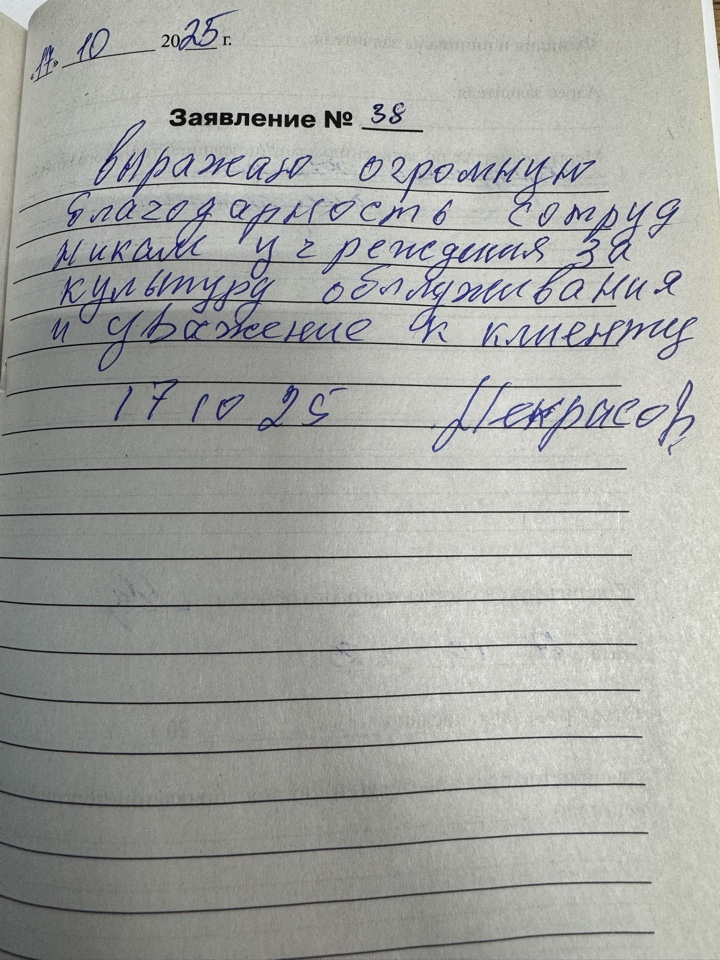 «17» 10 2025 г.
Заявление № 38
выражаю огромную
благодарность сотруд
никам учреждения за
культуру обслуживания
и уважение к клиенту
17 10 25 Некрасов